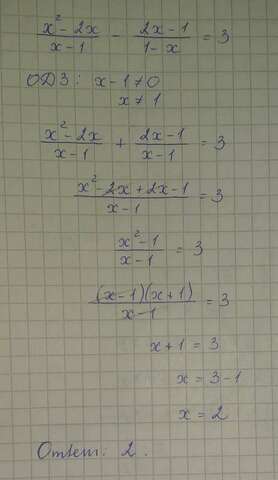 (x² - 2x)/(x - 1) - (2x - 1)/(1 - x) = 3
ОДЗ: x - 1 ≠ 0
x ≠ 1
(x² - 2x)/(x - 1) + (2x - 1)/(x - 1) = 3
(x² - 2x + 2x - 1)/(x - 1) = 3
(x² - 1)/(x - 1) = 3
((x - 1)(x + 1))/(x - 1) = 3
x + 1 = 3
x = 3 - 1
x = 2
Ответ: 2.